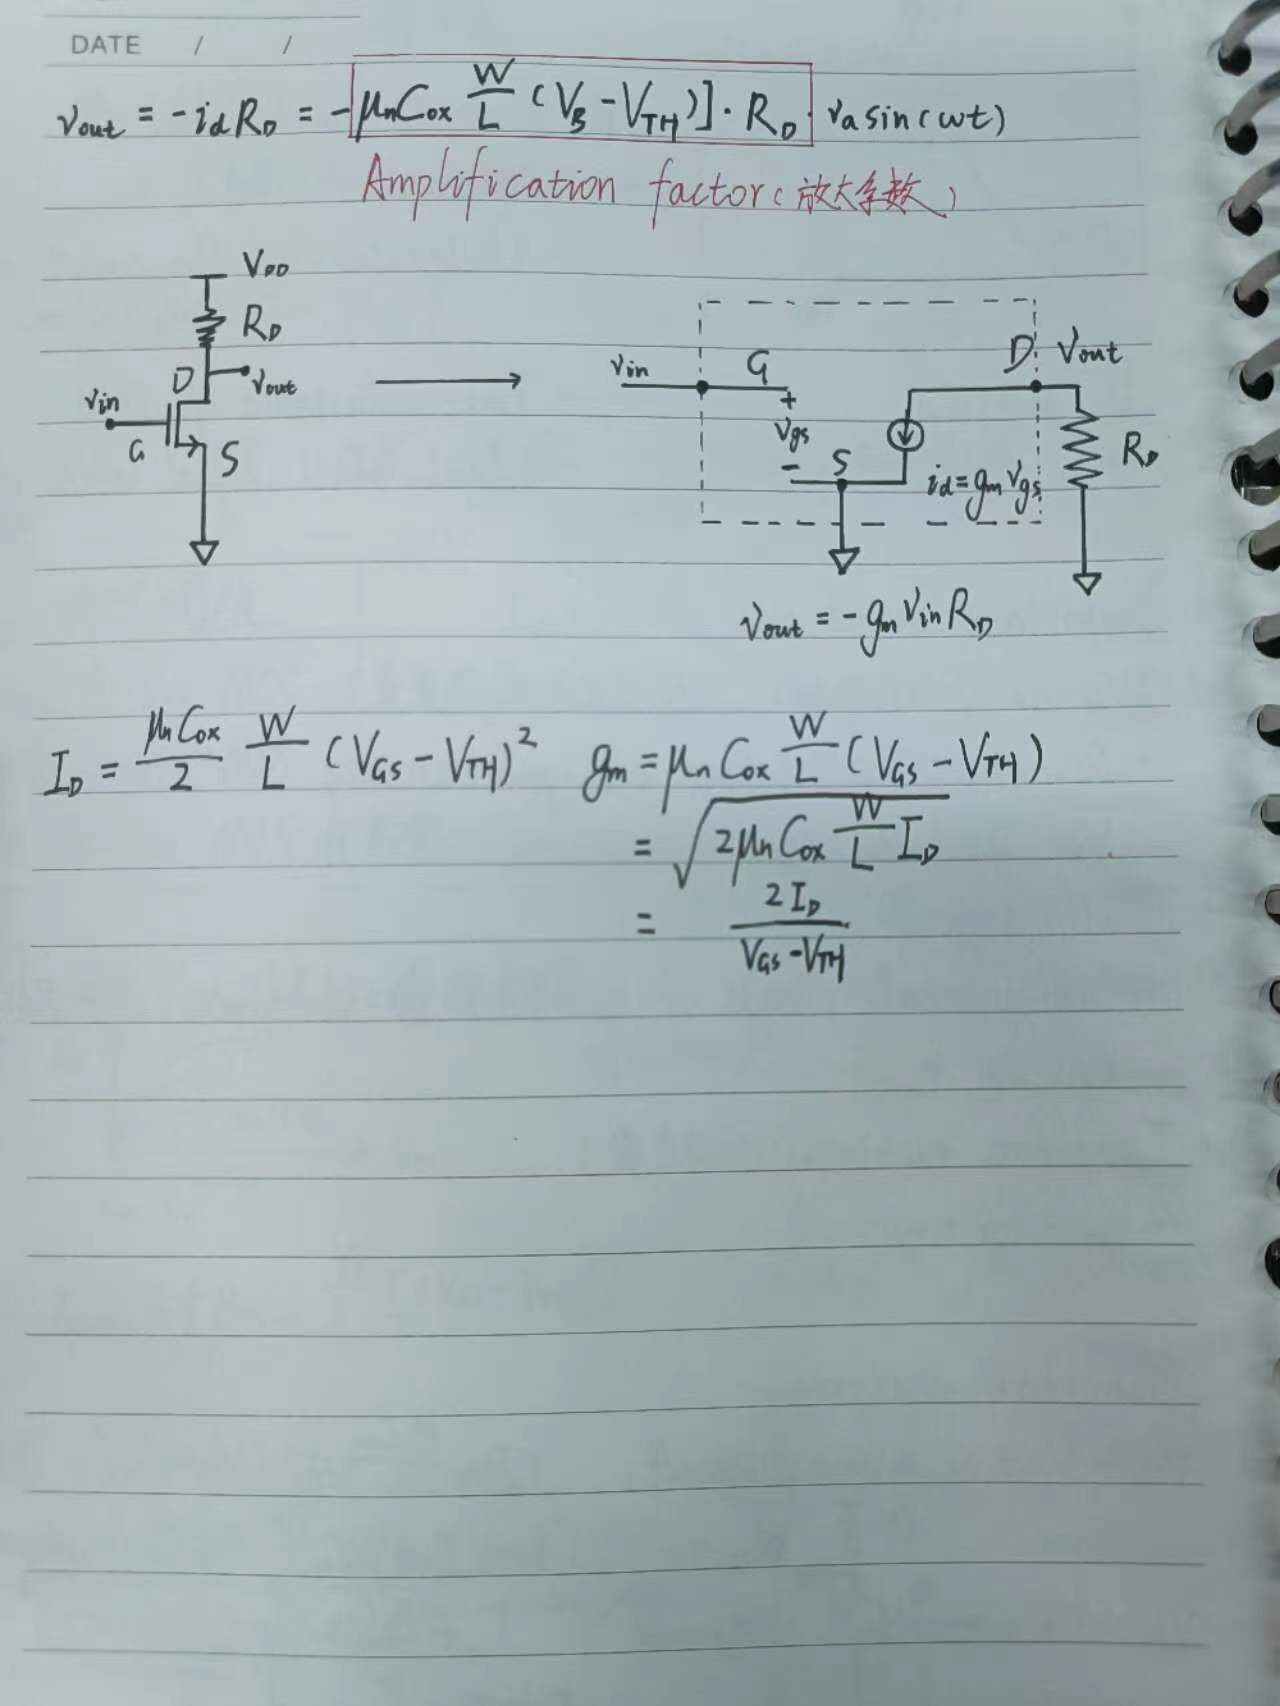 DATE / /
vout = -id RD = -μnCox W/L (VB - VTH)] · RD · va sin(ωt)
Amplification factor (放大系数)
VDD
RD
D
vout
vin
G
S
vin
G
D
Vout
+
Vgs
-
S
id = gm Vgs
RD
vout = -gm Vin RD
ID = μnCox/2 W/L (VGS - VTH)²
gm = μn Cox W/L (VGS - VTH)
= √(2μn Cox W/L ID)
= 2ID/(VGS - VTH)